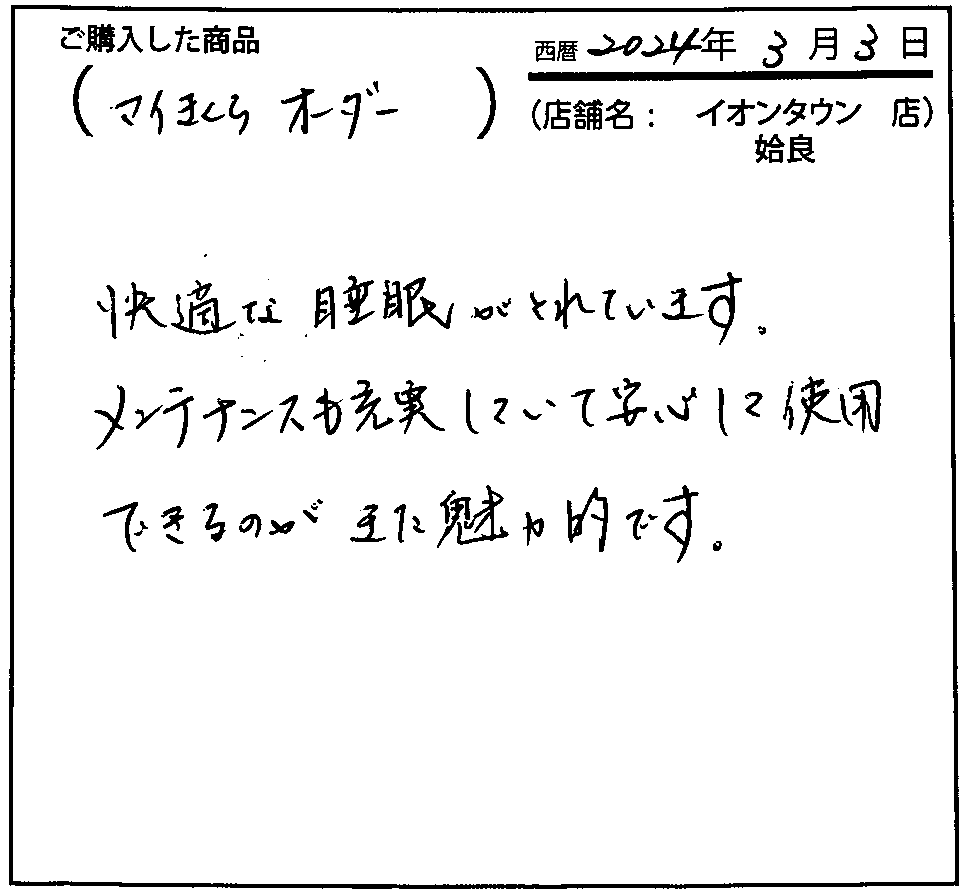 ご購入した商品
(マイまくら オーダー)
西暦 2024年 3月3日
(店舗名: イオンタウン 店)
姶良
快適な睡眠がとれています。
メンテナンスも充実していて安心して使用
できるのがまた魅力的です。